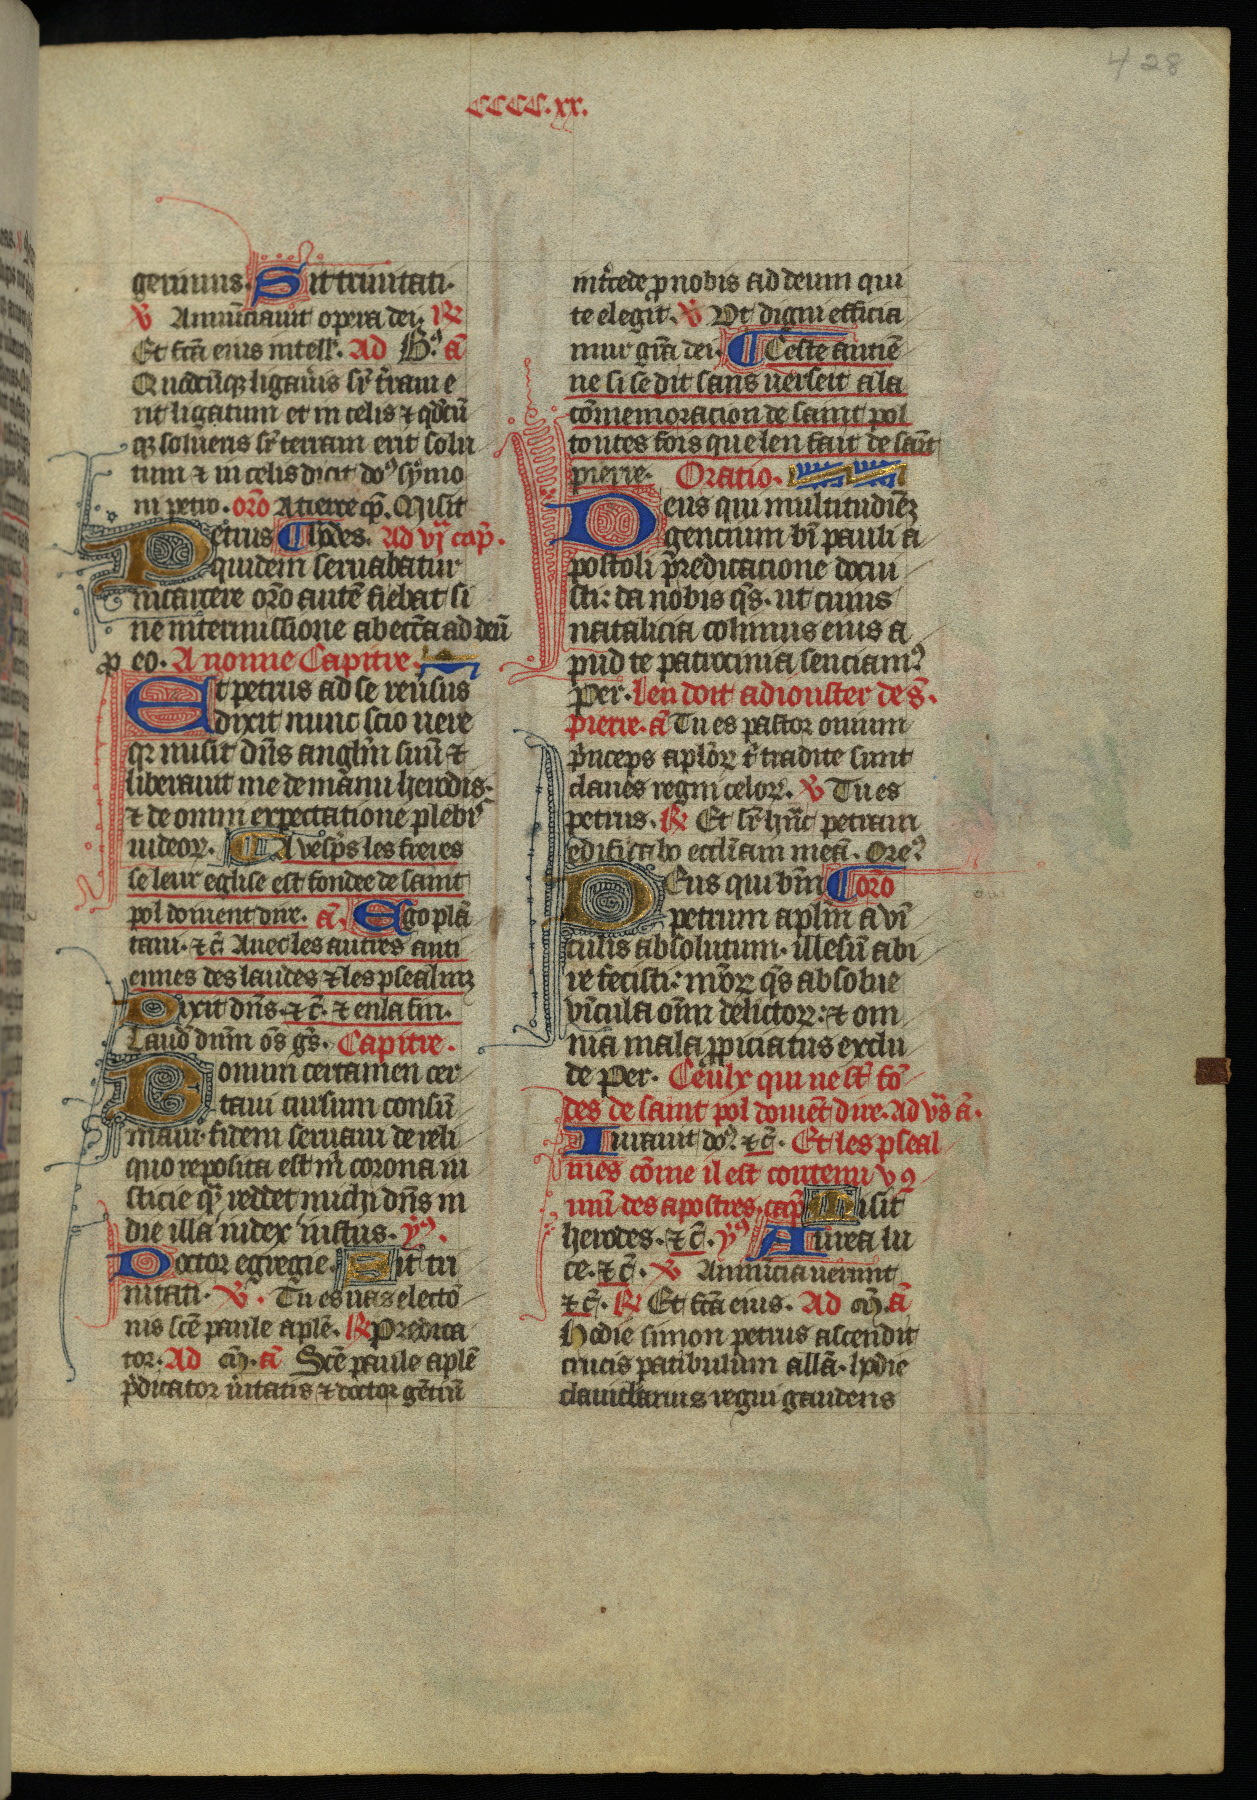 428
CCCC.xx.
geminus. Sit trinitati.
℣ Annũciauit opera dei. ℟
Et fc̃a eius intell'. Ad B'. ã
Quodcũqꝫ ligau'is sr̃ t'ram e
rit ligatum et in celis ⁊ qd̃cũ
qꝫ solueris sr̃ terram erit solu
tum ⁊ in celis dicit dñs symo
ni petro. or̃o A tierce cp̃. Misit
Petrus Apdes. Ad vj cap̃.
quidem seruabatur
in carcere or̃o autẽ fiebat si
ne intermissione ab ecc̃a ad deũ
p eo. A nonne Capitre.
Et petrus ad se reu'sus
dixit nunc scio uere
qꝛ misit dñs angl'm suũ ⁊
liberauit me de manu herodis.
⁊ de omni expectatione plebis
iudeoꝝ. A vesp̃s les freres
se leur eglise est fondee de saint
pol doiuent dire. ã. Ego plã
taui. ⁊ c̃ Auec les autres anti
ennes des laudes ⁊ les psealmꝫ
Dixit dñs. ⁊ c̃. ⁊ en la fin.
Laud' dñm õs gẽs. Capitre.
Bonum certamen cer
taui cursum consũ
maui. fidem seruaui de reli
quo reposita est m' corona iu
sticie qm̃ reddet michi dñs in
die illa iudex iustus. yꝰ.
Doctor egregie. Sit tri
nitati. ℣. Tu es uas electõ
nis sc̃e paule aplẽ. ℟ Predica
tor. Ad m̃. ã Sc̃e paule aplẽ
p'dicator u'itatis ⁊ doctor gẽtiũ
int'cede p nobis ad deum qui
te elegit. ℣ Vt digni efficia
mur gr̃a dei. Ceste antiẽ
ne si se dit sans verseit a la
cõmemoracion de saint pol
toutes fois que len fait de saint
pierre. Oratio.
Deus qui multitudinẽ
gencium bt̃i pauli a
postoli p̃redicatione docui
sti: da nobis qs̃. ut cuius
natalicia colimus eius a
pud te patrocinia senciamꝰ
Per. Len doit adiouster de s̃.
pierre. ã Tu es pastor ouium
p'nceps apl'oꝝ t' tradite sunt
claues regni celoꝝ. ℣ Tu es
petrus. ℟ Et sr̃ hãc petram
edificabo eccl'iam meã. Oreꝰ
Deus qui bt̃m or̃o
petrum apl'm a vi'
culis absolutum. illesũ abi
re fecisti: nr̃oꝝ qs̃ absolue
vi'cula om̃ delictoꝝ: ⁊ om
nia mala ppiciatus exclu
de Per. Ceulx qui ne sõt fõ
des de saint pol doiuẽt dire. Ad vs̃ ã.
Iurauit dñs. ⁊ c̃. Et les pseal
mes cõme il est contenu v 9
mũ des apostres. cap̃ Misit
herodes. ⁊ c̃. yꝰ Aurea lu
ce. ⁊ c̃. ℣ Annũciauerunt
⁊ c̃. ℟ Et fc̃a eius. Ad m̃. ã
Hodie simon petrus ascendit
crucis patibulum all'a. hodie
clauiclarius regni gaudens